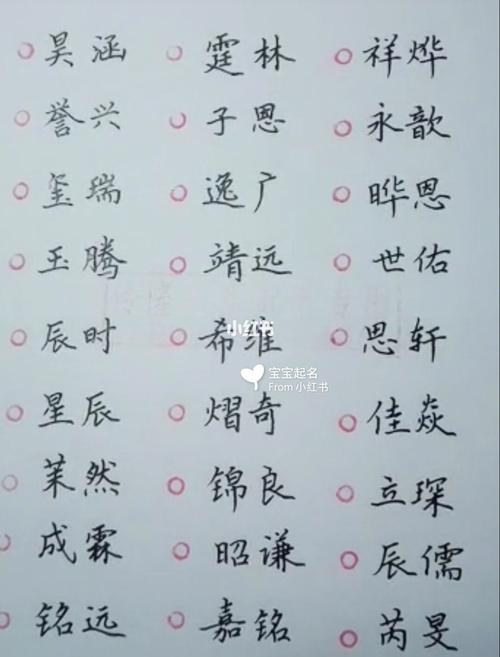 昊涵 霆林 祥烨
誉兴 子恩 永歆
玺瑞 逸广 晔恩
玉腾 靖远 世佑
小红书
辰时 希维 思轩
宝宝起名
From 小红书
星辰 熠奇 佳焱
茉然 锦良 立琛
成霖 昭谦 辰儒
铭远 嘉铭 芮旻